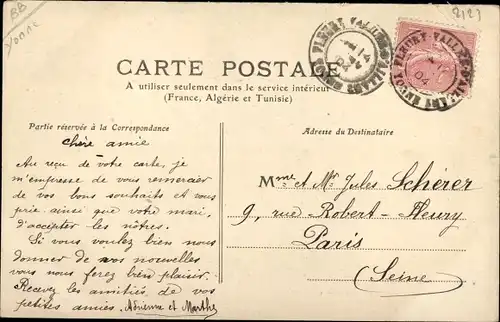 BB
Yonne
2121
FLEURY VALLÉE D'AILLANT
04
FLEURY VALLÉE D'AILLANT
04
CARTE POSTALE
A utiliser seulement dans le service intérieur
(France, Algérie et Tunisie)
Partie réservée à la Correspondance
Adresse du Destinataire
Chère amie
Au reçu de votre carte, je
m'empresse de vous remercier
de vos bons souhaits et vous
prie ainsi que votre mari,
d'accepter les nôtres.
Si vous voulez bien nous
donner de vos nouvelles
vous nous ferez bien plaisir.
Recevez les amitiés de vos
petites amies. Adrienne et Marthe
Mme et Mr Jules Schérer
9, rue Robert-Fleury
Paris
(Seine)